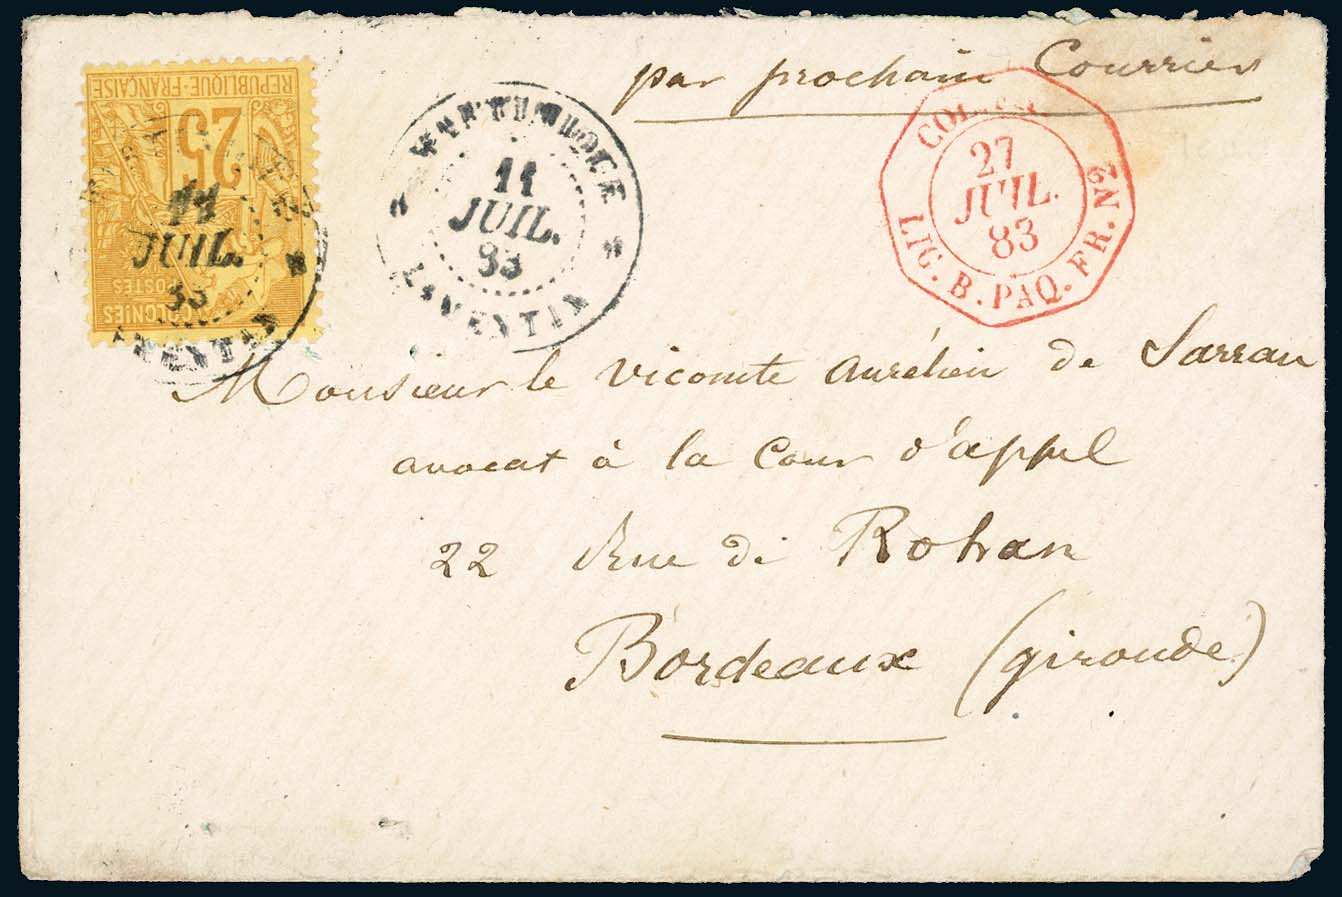 par prochain Courrier
RÉPUBLIQUE-FRANÇAISE
25
POSTES
COLONIES
11
JUIL.
83
LAMENTIN
11
JUIL.
83
LAMENTIN
27
JUIL.
83
LIG. B. PAQ. FR. N2
Monsieur le Vicomte Aurélien de Sarrau
avocat à la Cour d'appel
22 Rue de Rohan
Bordeaux (gironde)